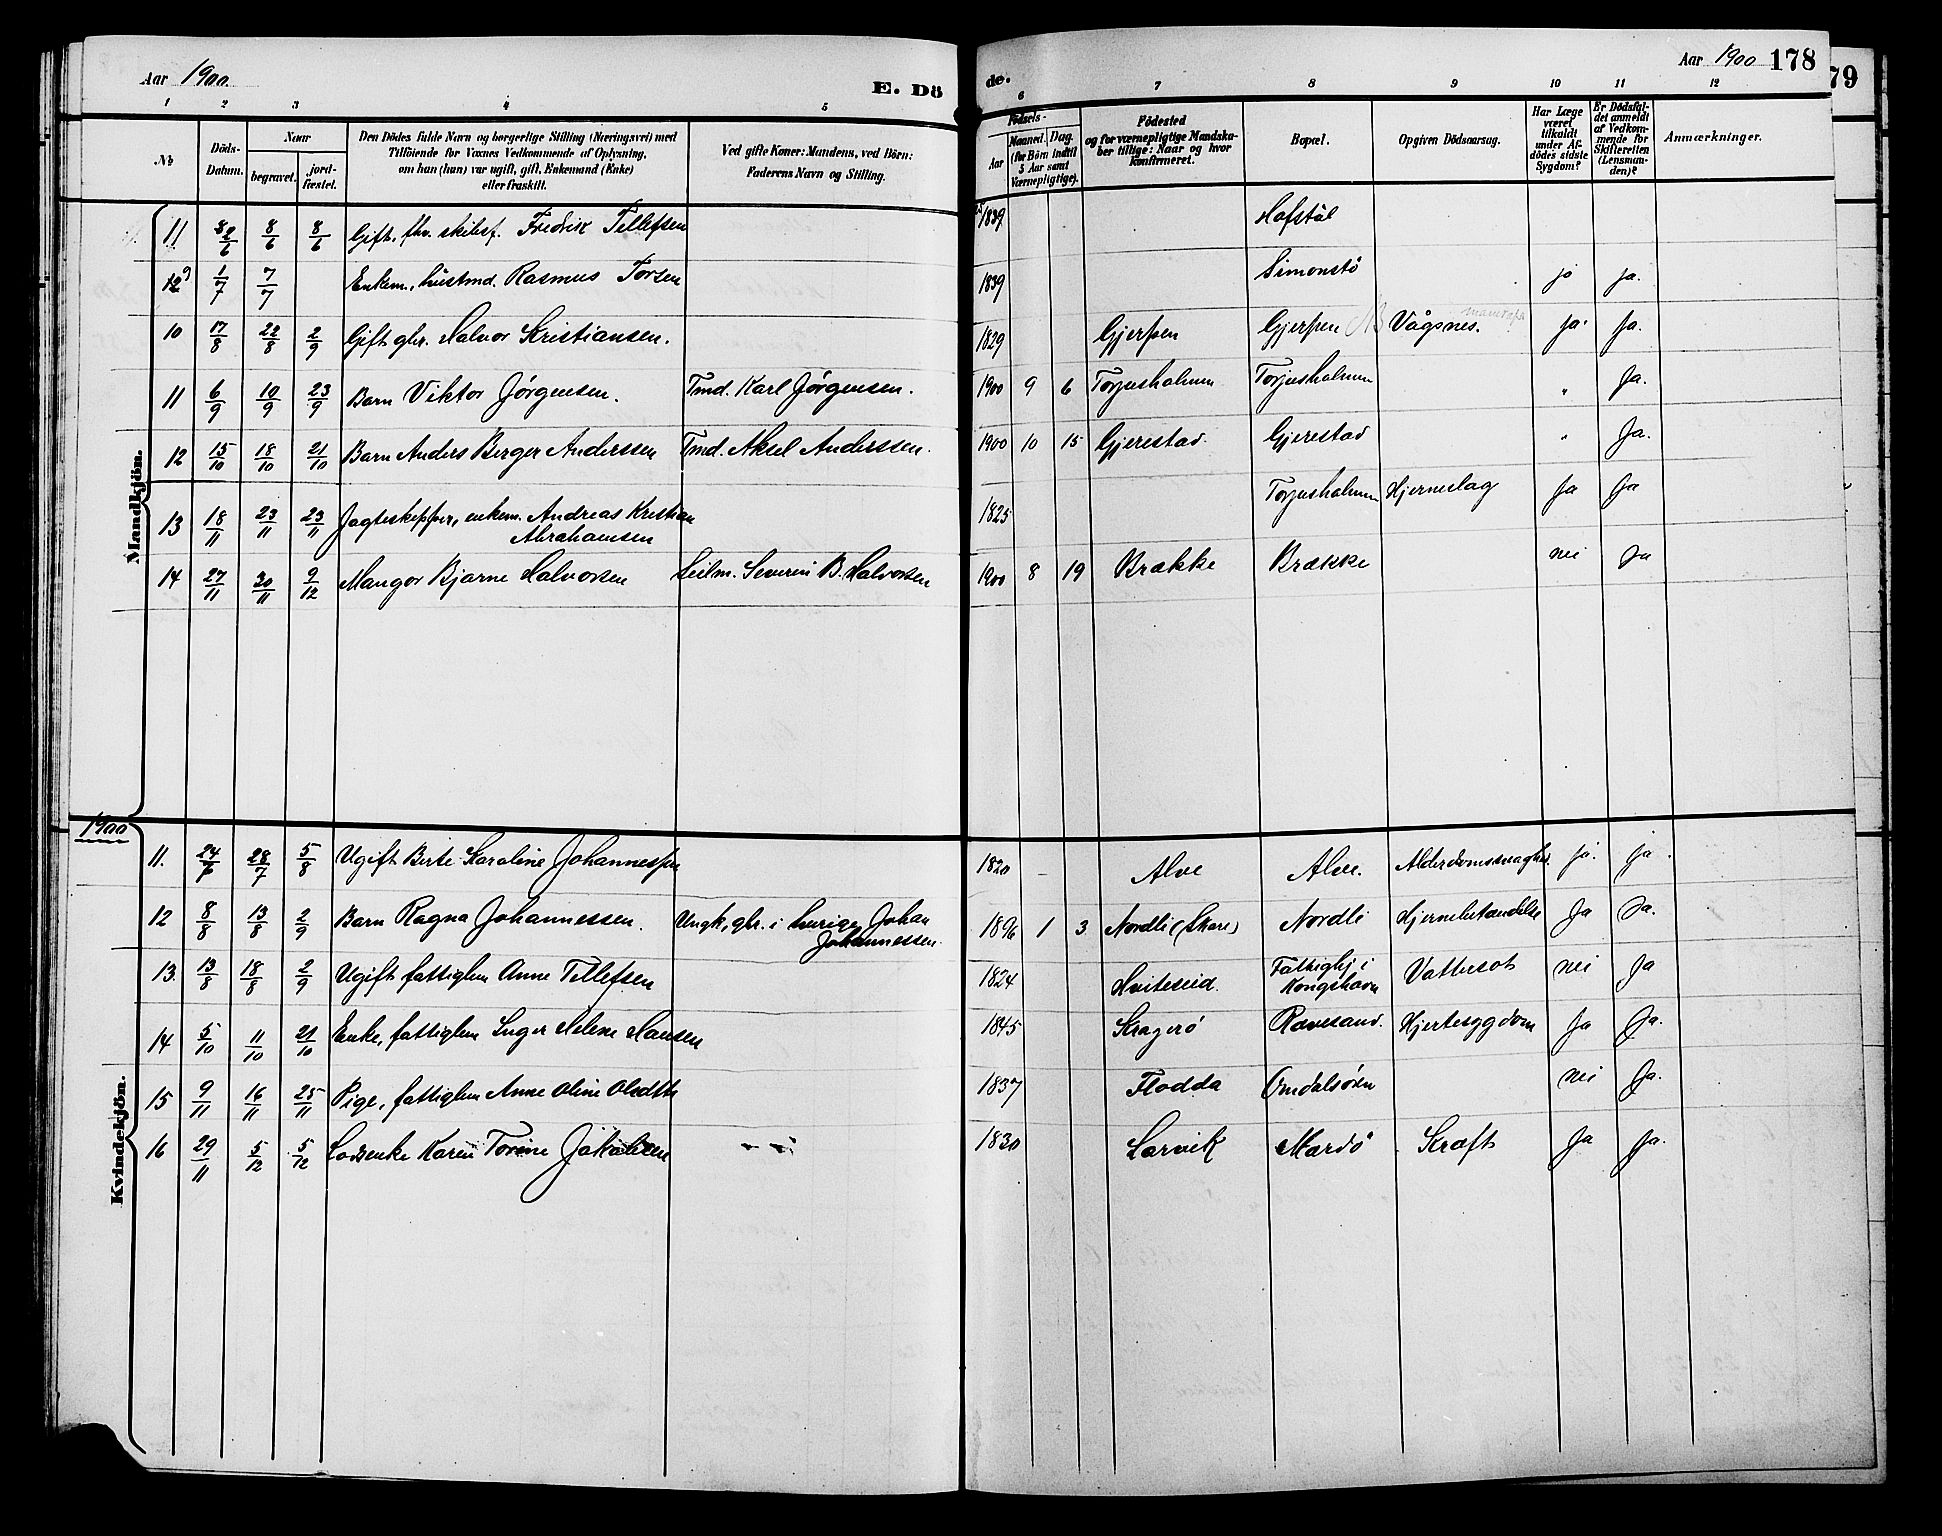 Aar 1900. E. Dö
de. Aar 1900 178
79
1 2 3 4 5 6 7 8 9 10 11 12
No
Döds-
Datum.
Naar
begravet.
jord-
fæstet.
Den Dödes fulde Navn og borgerlige Stilling (Næringsvei) med
Tilföiende for Voxnes Vedkommende af Oplysning,
om han (hun) var ugift, gift, Enkemand (Enke)
eller fraskilt.
Ved gifte Koner: Mandens, ved Börn:
Faderens Navn og Stilling.
Födsels-
Aar
Maaned. Dag.
(for Börn indtil
5 Aar samt
Værnepligtige).
Födested
og for værnepligtige Mandska-
ber tillige: Naar og hvor
konfirmeret.
Bopæl.
Opgiven Dödsaarsag.
Har Læge
været
tilkaldt
under Af-
dödes sidste
Sygdom?
Er Dödsfal-
det anmeldt
af Vedkom-
mende for
Skifteretten
(Lensman-
den)?
Anmærkninger.
Mandkjön.
11 2/6 8/6 8/6 Gift, fhv. skibsf. Fredrik Tellefsen 1839 Hafstöl
12 1/7 7/7 Enkem., husmd. Rasmus Torsen 1839 Simonstö ja ja.
10 17/8 22/8 2/9 Gift gbr. Halvor Kristiansen. 1829 Gjerpen Gjerpen Vågsnes. ja. ja.
11 6/9 19/9 23/9 Barn Viktor Jörgensen. Tmd. Karl Jörgensen. 1900 9 6 Torjusholmen Torjusholmen " Ja.
12 15/10 18/10 21/10 Barn Anders Berger Anderssen Tmd. Aksel Anderssen. 1900 10 15 Gjerestad. Gjerestad " Ja.
13 18/11 23/11 23/11 Jagteskipper, enkem. Andreas Kristian
Abrahamsen 1825 Torjusholmen Hjerneslag Ja Ja
14 27/11 30/11 9/12 Mangor Bjarne Halvorsen Seilm. Severin B. Halvorsen 1900 8 19 Brække Brække nei Ja
1900
Kvindekjön.
11. 24/7 28/7 5/8 Ugift Berte Karoline Johannessen 1820 - Alve Alve. Alderdomssvaghed ja. ja.
12 8/8 13/8 2/9 Barn Ragna Johannessen. Ungk., gbr. i Johan
Johannessen. 1896 1 3 Nordli (Skare) Nordli Hjernebetændelse Ja Ja.
13. 13/8 18/8 2/9 Ugift fattiglem Anne Tellefsen 1824 Hviteseid. Fattighj. i
Kongshavn Vattersot nei Ja
14 5/10 11/10 21/10 Enke, fattiglem Inger Helene Hansen 1845 Kragerö Ravesand. Hjertesygdom Ja Ja.
15 9/11 16/11 25/11 Pige, fattiglem Anne Oline Olsdttr 1837 Flodda Omdalsören nei Ja.
16 29/11 5/12 5/12 Lodsenke Karen Torine Jakobsen 1830 Larvik Mardö Kræft Ja Ja.